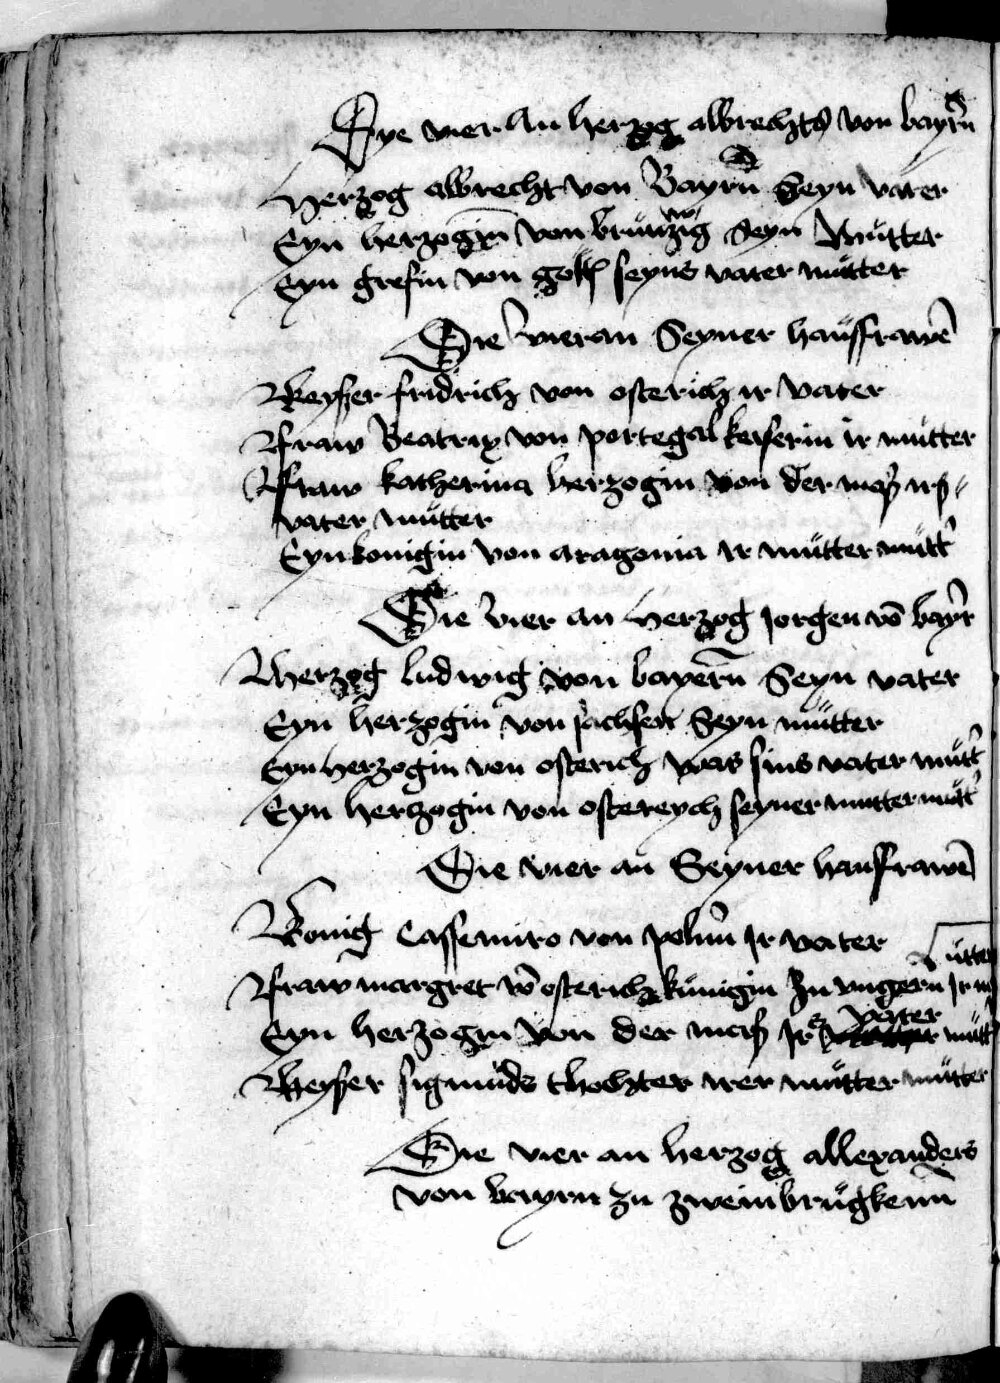 Dye vier An herzog albrechts von bayrn
Herzog albrecht von Bayrn Seyn vater
Eyn herzogin von brunzwig Seyn Mutter
Eyn grefin von seyns vater mutter
Die vier an Seyner haussfrawen
Keyser fridrich von osterich ir vater
Fraw Beatrix von portegal keiserin ir mutter
Fraw katherina herzogin von der mas irs
vater mutter
Eyn konigin von aragonia ir mutter mutt
Die vier an Herzog jorgen vo bayr
Herzog ludwig von bayern Seyn vater
Eyn herzogin von sachsen Seyn mutter
Eyn herzogin von osterich was sins vater mutt
Eyn herzogin von ostereych seyner mutter mutt
Die vier an Seyner hausfrawe
Konig Cassemiro von poln Ir vater
Fraw margret vo osterich kunigin zu ungern Ir mutter
Eyn herzogin von der mas Irs vater mutt
Keyser sigmuds thochter irer mutter mutter
Die vier an herzog allexanders
von bayrn zu zweinbrugkenn